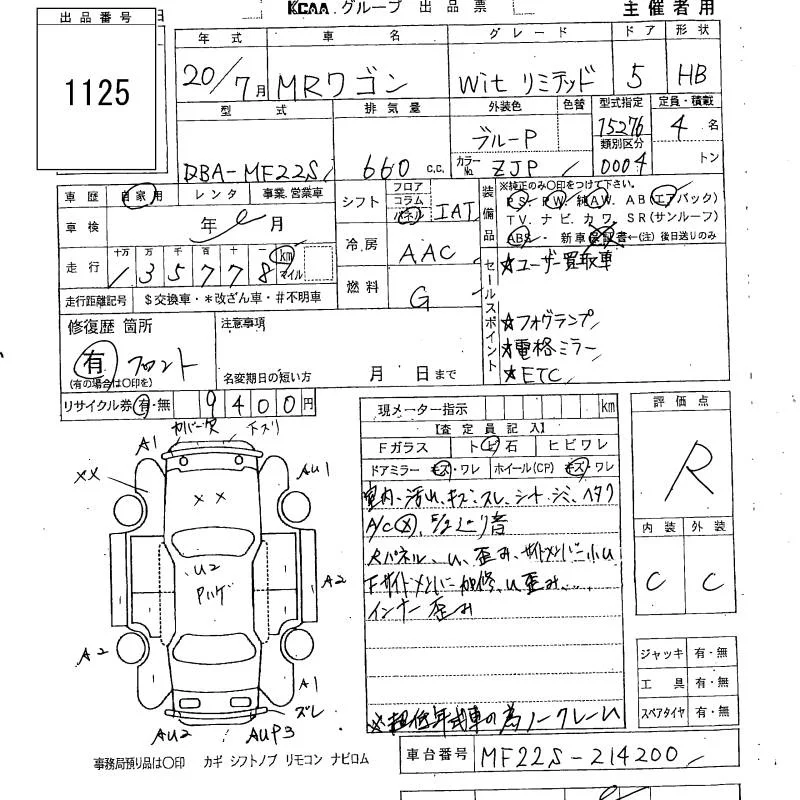 KCAA グループ 出品票 主催者用
出品番号 日
1125
年式 車名 グレード ドア 形状
20/7月 MRワゴン Wit リミテッド 5 HB
型式 排気量 外装色 色替 型式指定 定員・積載
DBA-MF22S 660 c.c. ブルーP 15276 4名
類別区分
カラーNo. ZJP 0004 トン
車歴 自家用 レンタ 事業.営業車
車検 年 月
走行 十万 万 千 百 十 一 km
135778 マイル
走行距離記号 $交換車・*改ざん車・#不明車
シフト フロア コラム パネル IAT
冷房 AAC
燃料 G
装備品 ※純正のみ○印をつけて下さい。
PS. PW. 純AW. AB(エアバック)
TV. ナビ. カワ. SR(サンルーフ)
ABS・ 新車保証書←(注) 後日送りのみ
セールスポイント
★ユーザー買取車
★フォグランプ
★電格ミラー
★ETC
修復歴 箇所
有 フロント
(有の場合は○印を)
注意事項
名変期日の短い方 月 日まで
リサイクル券 有・無 9400円
現メーター指示 km
【査定員記入】
Fガラス トビ石 ヒビワレ
ドアミラー キズ・ワレ ホイール(CP) キズ・ワレ
室内、汚れ、キズ、スレ、シート、シミ、ヘタリ
A/C
Rパネル、U、歪み、サイドメンバー小U
Fサイドメンバー 加修、U歪み
インナー歪み
※超低年式車の為ノークレーム
評価点
R
内装 外装
C C
ジャッキ 有・無
工具 有・無
スペアタイヤ 有・無
カバー欠 下スリ
A1 AU1
××
××
U2
Pハゲ
A2
A2
A1
ズレ
AU2 AUP3
事務局預り品は○印 カギ シフトノブ リモコン ナビロム
車台番号 MF22S-214200